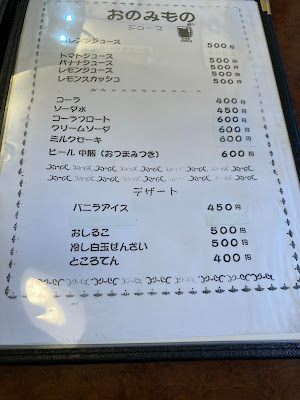 おのみもの
ジュース
オレンジジュース 500円
トマトジュース 500円
バナナジュース 500円
レモンジュース 500円
レモンスカッシュ 500円
コーラ 400円
ソーダ水 450円
コーラフロート 600円
クリームソーダ 600円
ミルクセーキ 600円
ビール 中瓶 (おつまみつき) 600円
デザート
バニラアイス 450円
おしるこ 500円
冷し白玉ぜんざい 500円
ところてん 400円